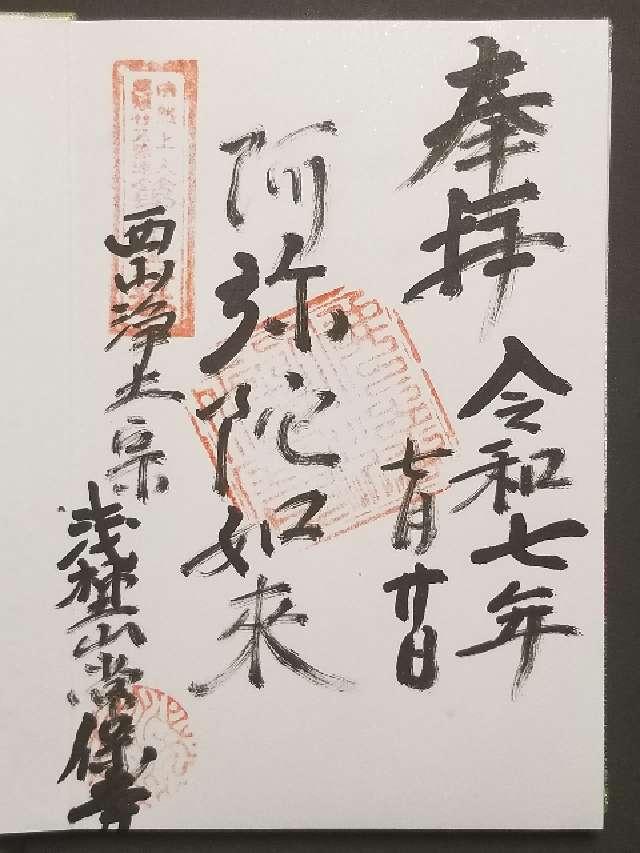 奉拝
令和七年
七月廿日
阿弥陀如来
西山浄土宗
浅埜山常保寺